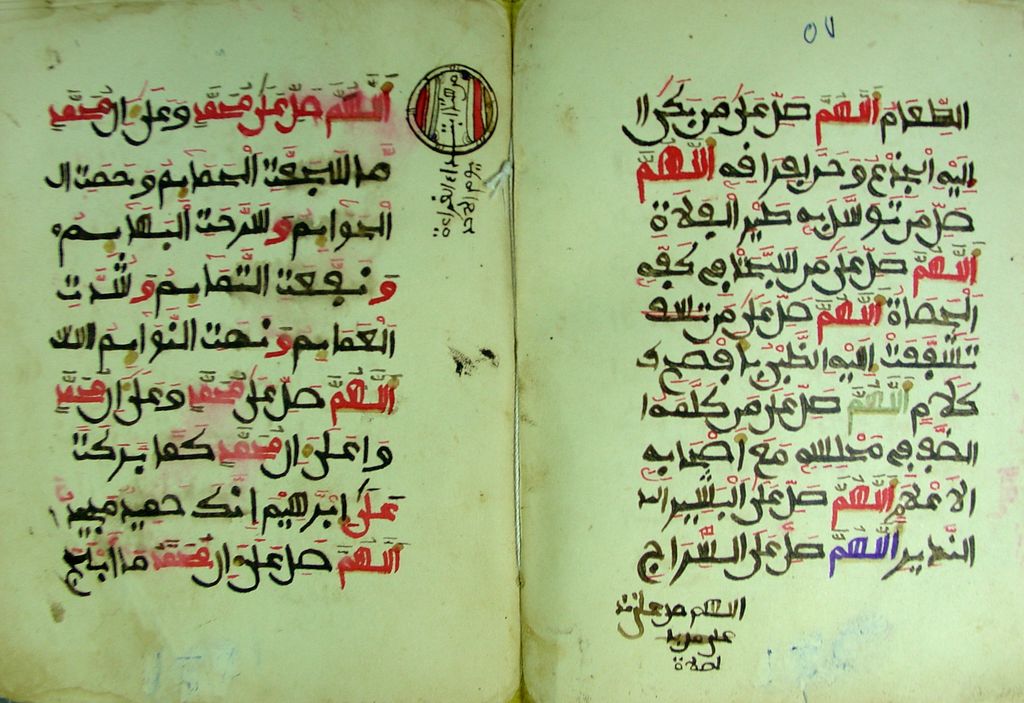 ٥٧
الطعام اللهم صل على من بكى ا
اليه الجذع وحن لفرافه اللهم
صل من توسل به طير الفلاة
اللهم صل على من سبحت في كفه
الحصاة اللهم صل على من
تشفعت اليه الظبي بافصح
كلام اللهم صل على من كلمه ا
الضب في مجلسه مع اصحابه
الاعلام اللهم صل على البشير
النذير اللهم صل على السراج
اللهم صل على
من هنا ابتداء القراءة
يوم الاحد
اللهم صل على محمد وعلى ال محمد
ما سجعت الحمايم وحمت ال
الحوايم وسرحت البهايم
ونفعت التمايم وشدت
العمايم ونمت النوايم
اللهم صل على محمد وعلى ال محمد
وا على وال محمد كما بركت
على ابرهيم انك حميد مجيد
اللهم صل على وال محمد ما ابلج